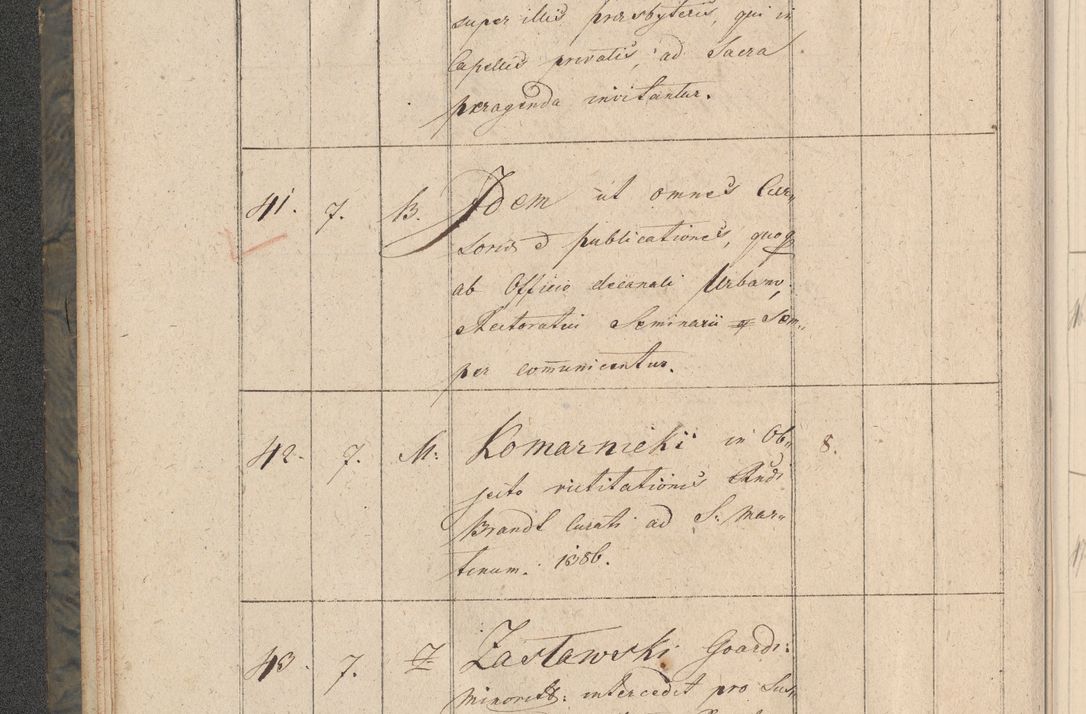 super illis presbyteris, qui in
Capellis privatis, ad Sacra
peragenda invitantur.
41. 7. B. Idem ut omnes Cur„
publicationes,
ab Officio decanali Urbano,
Rectoratui Seminarii Sem„
per com̅unicentur.
42. 7. M: Komarnicki in Ob„ 8.
jecto Andr
Brandt Curati ad S: Mar„
tinum. 1386.
43. 7. Zasławski Guardi:
Minorit: intercedit pro Sus„